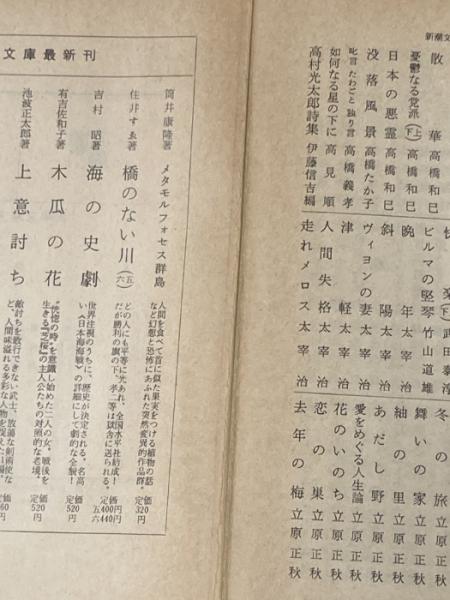 新潮文
散華 高橋和巳
憂鬱なる党派(上)(下) 高橋和巳
日本の悪霊 高橋和巳
没落風景 高橋たか子
叱言 たわごと 独り言 高橋義孝
如何なる星の下に 高見順
高村光太郎詩集 伊藤信吉編
快楽(下) 武田泰淳
ビルマの竪琴 竹山道雄
晩年 太宰治
斜陽 太宰治
ヴィヨンの妻 太宰治
津軽 太宰治
人間失格 太宰治
走れメロス 太宰治
冬の旅 立原正秋
舞いの家 立原正秋
紬の里 立原正秋
あだし野 立原正秋
愛をめぐる人生論 立原正秋
花のいのち 立原正秋
恋の巣 立原正秋
去年の梅 立原正秋
文庫最新刊
筒井康隆著 メタモルフォセス群島
人間を食べて首に似た果実をつける植物の話
など幻想と恐怖にあふれた突然変異的作品群。
価320円
住井すゑ著 橋のない川(五)(六)
どの人にも平等に光あれ、全国水平社結成！
だが勝利の旗の下、孝二等は獄舎に送られる。
定価 五400円 六440円
吉村昭著 海の史劇
世界注視のうちに、歴史が決定される。名高
い《日本海海戦》の詳細にして劇的な全貌！
定価520円
有吉佐和子著 木瓜の花
を意識し始めた二人の女。戦後を
生きる『芝桜』の主人公たちの対照的な老境。
定価520円
池波正太郎著 上意討ち
敵討ちを敢行できない武士、放蕩な剣術使な
ど、人間味溢れる多彩な人物を捉えた